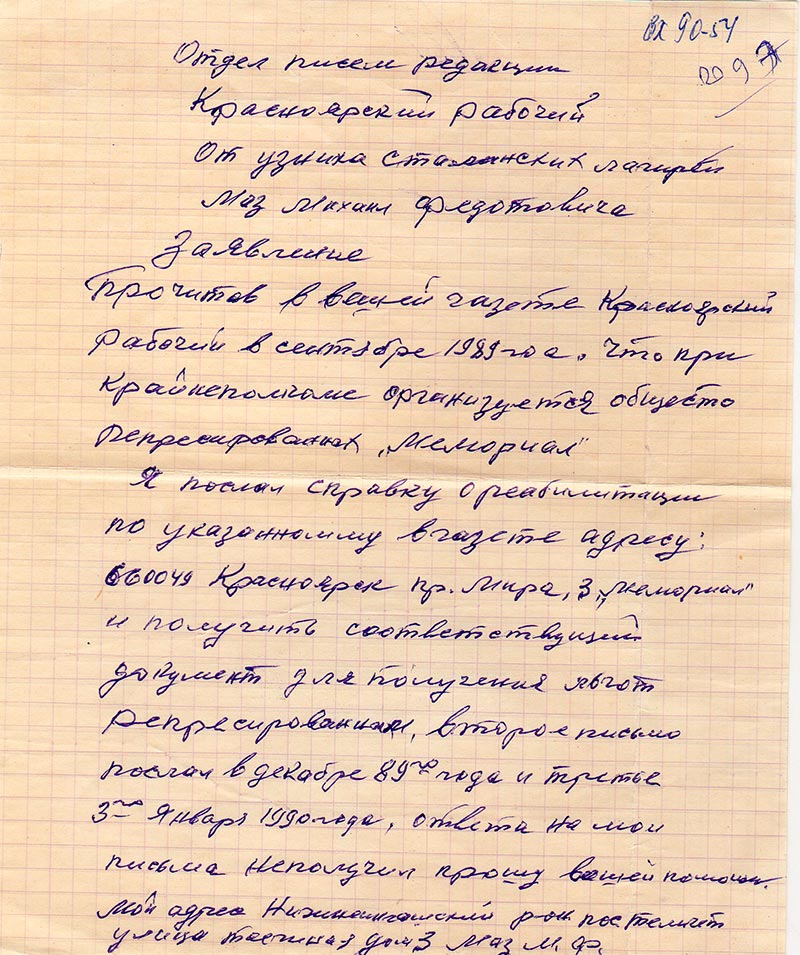 вх 90-54
20 9
Отдел писем редакции
Красноярский рабочий
От узника сталинских лагирей
Маз Михаил Федотовича
Заявление
Прочитав в вашей газете Красноярский
Рабочий в сентябре 1989 года. Что при
Крайнеполкоме организуется общесто
Репресированных „Мемориал"
Я послал справку о реабилитации
по указанному в газете адресу:
660049 Красноярск пр. Мира, 3 „Мемориал"
и получить соответствующий
документ для получения льгот
репресированным, второе письмо
послал в декабре 89го года и третье
3го Января 1990 года, ответа на мои
письма неполучил прошу вашей помощи.
мой адрес Нижнеингашский рон пос
улица дом 3 Маз М. Ф.